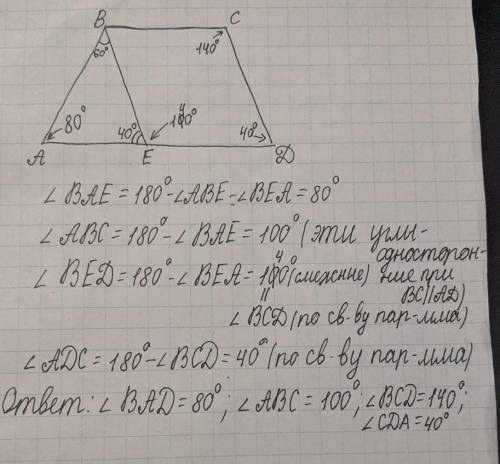 B
C
60°
140°
80°
40°
140°
40°
A
E
D
∠BAE = 180° - ∠ABE - ∠BEA = 80°
∠ABC = 180° - ∠BAE = 100° (эти углы-
односторон-
ние при
BC||AD)
∠BED = 180° - ∠BEA = 140° (смежные)
||
∠BCD (по св-ву пар-мма)
∠ADC = 180° - ∠BCD = 40° (по св-ву пар-мма)
Ответ: ∠BAD = 80°; ∠ABC = 100°; ∠BCD = 140°;
∠CDA = 40°